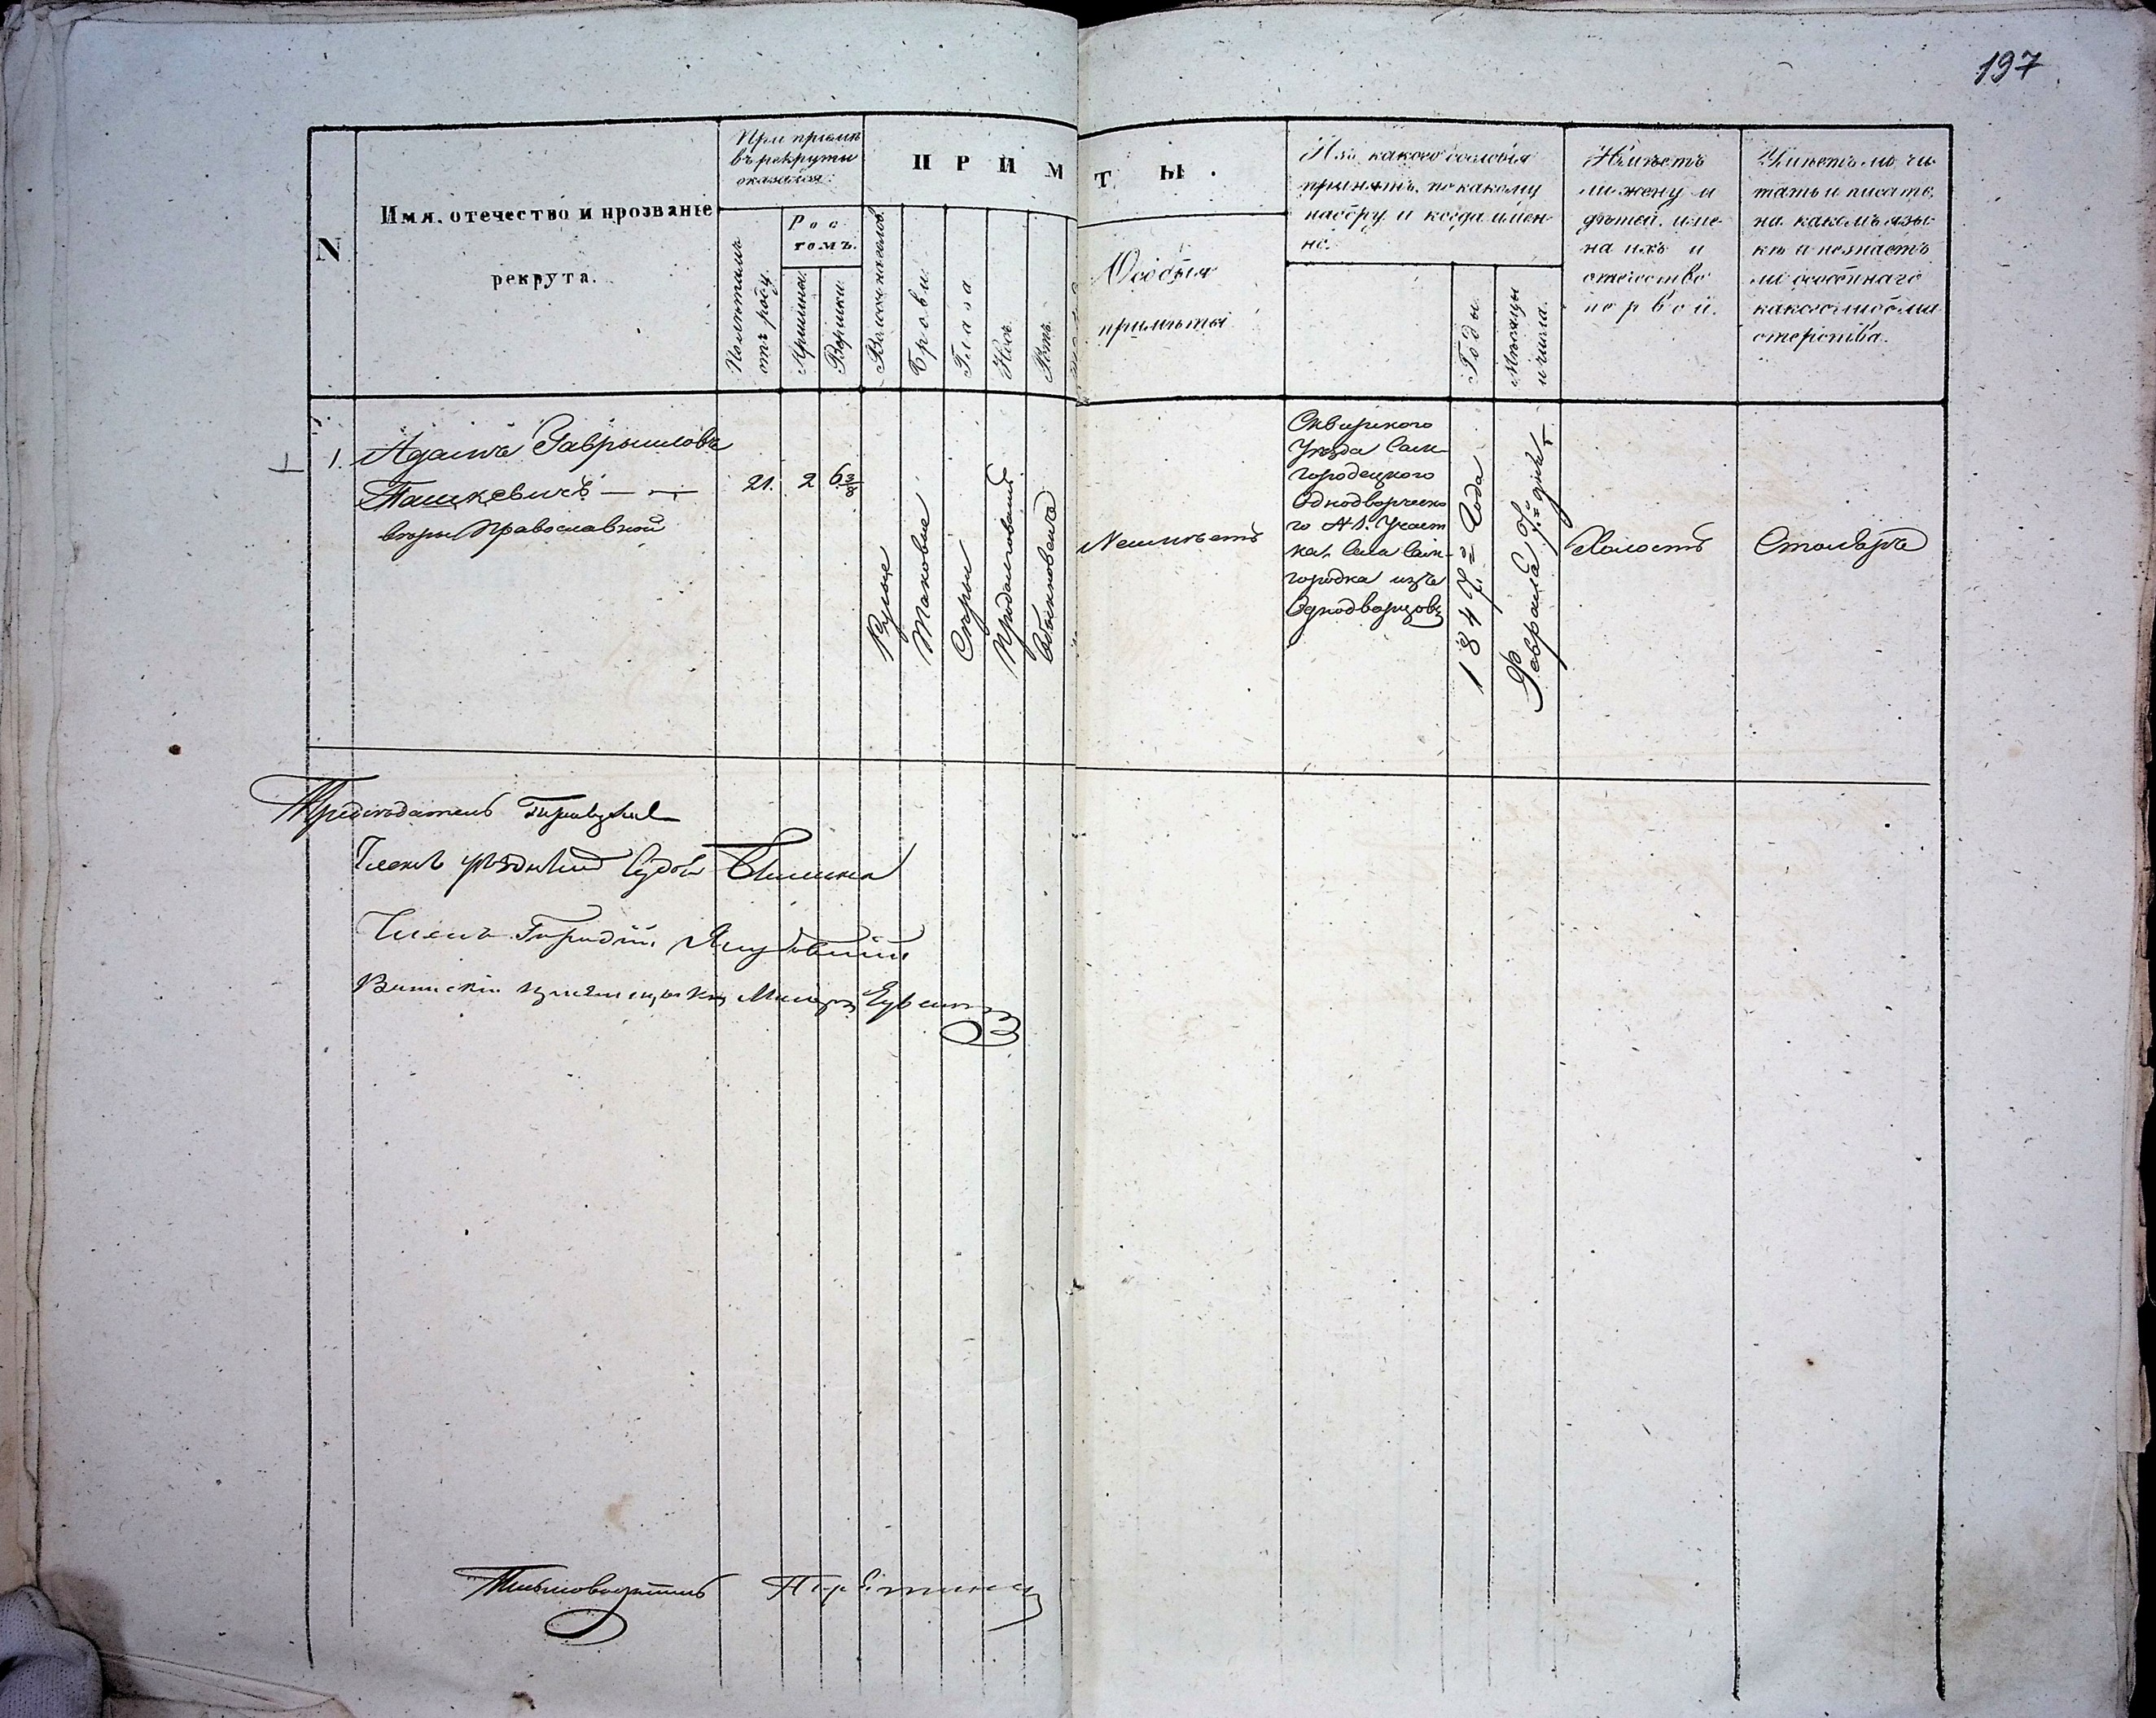 197
N
Имя, отечество и прозванье
рекрута.
При приемѣ
въ рекруты
оказался:
Полнѣтамъ
отъ роду.
Рос
томъ.
Аршины.
Вершки.
ПРИМ
Волосы на голов.
Брови.
Глаза
Носъ.
Ротъ.
ТЫ.
Особыя
примѣты
Изъ какого сословія
принятъ, по какому
набору и когда имен-
но.
Годы.
Мѣсяцы
и числа.
Имѣетъ
ли жену и
дѣтей, име-
на ихъ и
отечество
первой.
Умѣетъ ли чи-
тать и писать,
на какомъ язы-
кѣ и не знаетъ
ли особеннаго
какого либо ма-
стерства.
1.
Адамъ Гаврыиловъ
Пашкевичъ — —
вѣры Православной
21.
2
6 3/8
Русые
Таковые
Серыи
Продолговатый
Обыкновенъ
Неимѣетъ
Сквирского
Уѣзда Сам-
городецкого
Однодворческо
го № 1. Участ
ка, Села Сам-
городка изъ
Однодворцовъ
1847=й Года
Февраля 7=й дня
Холостъ
Столяръ
Предсѣдатель
Членъ уѣздный Судья
Членъ
Военскій пріемщикъ Маіоръ
Письмоводитель